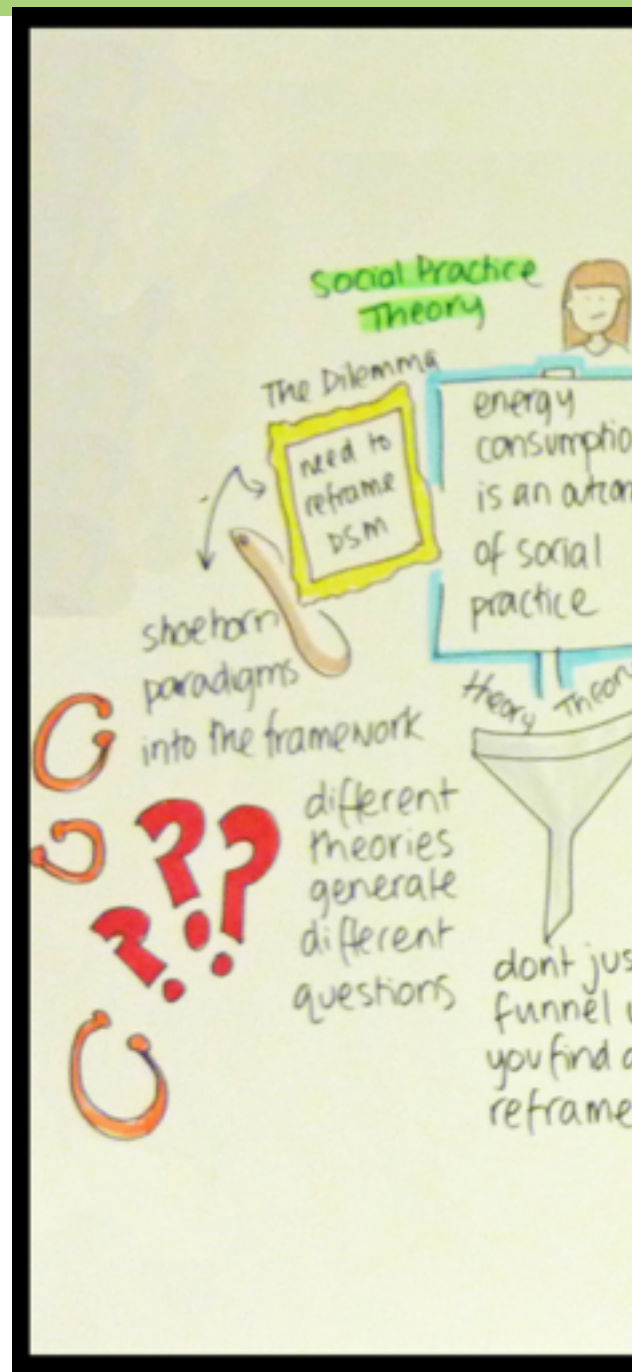 Social Practice
Theory
The Dilemma
need to
reframe
DSM
energy
consumptio
is an
of social
practice
shoehorn
paradigms
into the framework
theory Theor
different
theories
generate
different
questions
dont jus
funnel
you find
reframe